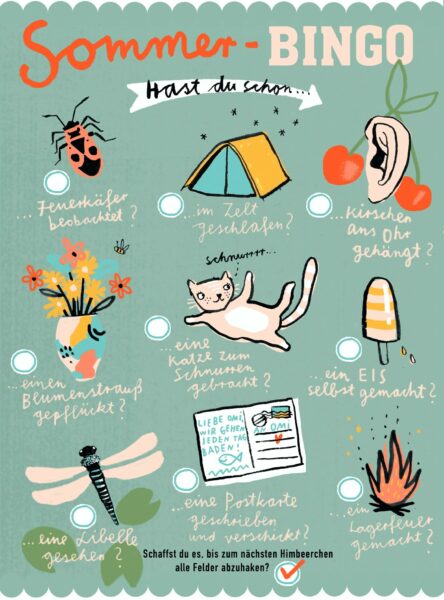 Sommer-BINGO
Hast du schon...
...Feuerkäfer
beobachtet?
...im Zelt
geschlafen?
...kirschen
ans Ohr
gehängt?
...einen
Blumenstrauß
gepflückt?
schnurrrr...
...eine
Katze zum
Schnurren
gebracht?
...ein EIS
selbst gemacht?
...eine Libelle
gesehen?
LIEBE OMI,
WIR GEHEN
JEDEN TAG
BADEN!
AN OMI
...eine Postkarte
geschrieben
und verschickt?
...ein
Lagerfeuer
gemacht?
Schaffst du es, bis zum nächsten Himbeerchen
alle Felder abzuhaken?